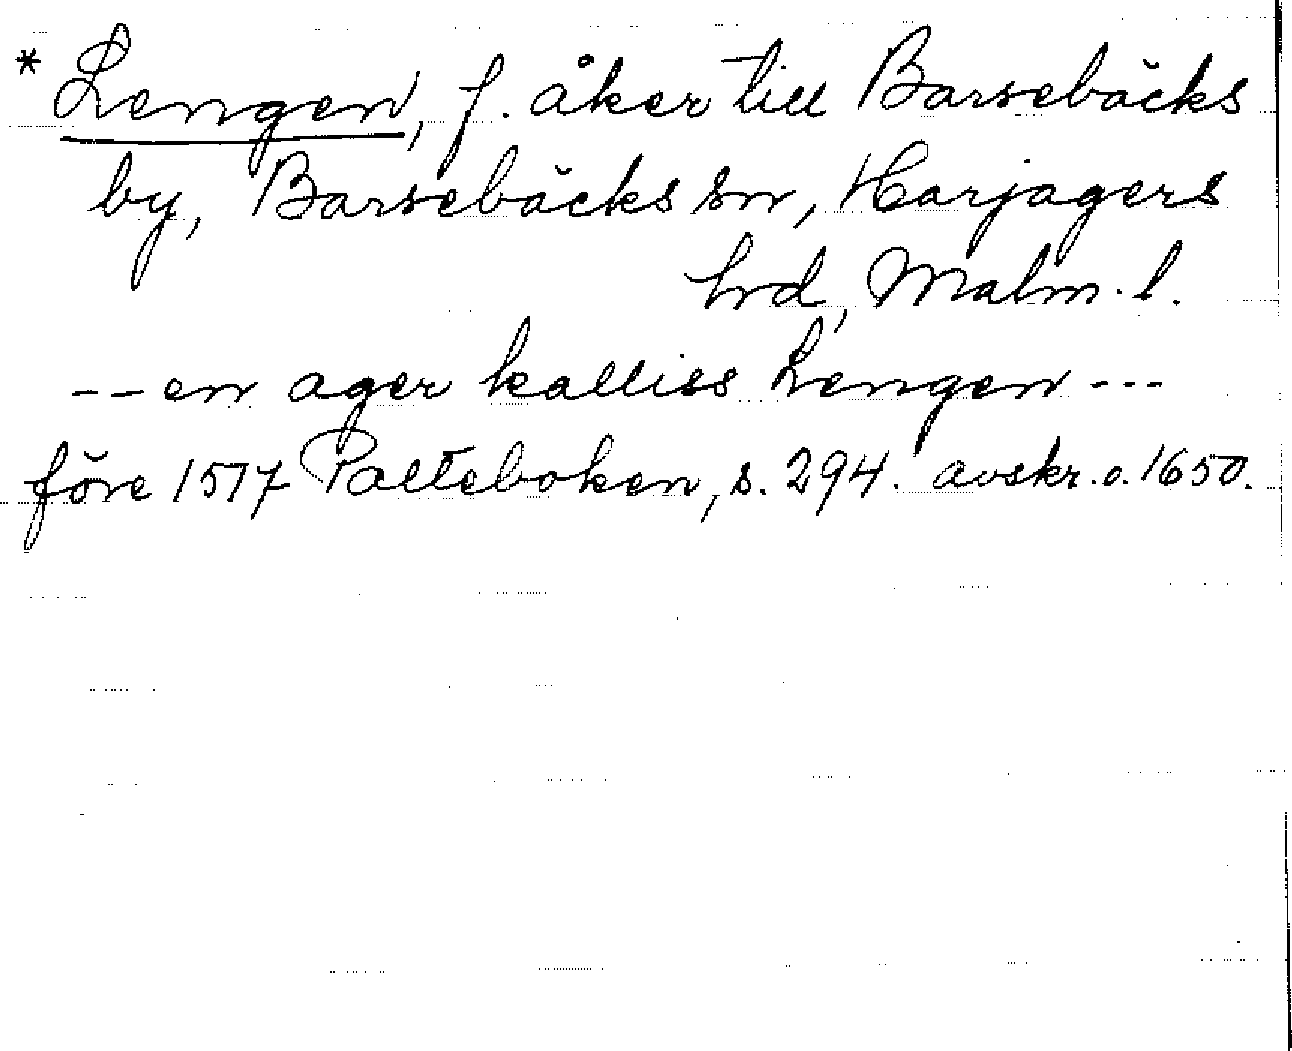 * Lengen, f. åker till Barsebäcks
by, Barsebäcks sn, Harjagers
hrd, Malm. l.
-- en ager kalliss Lengen ---
före 1517 Palteboken, s. 294. avskr. o. 1650.